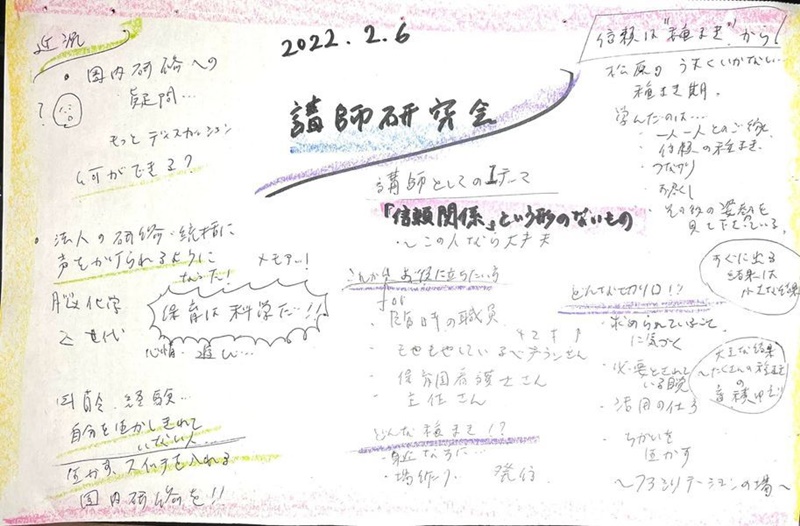 近況
2022.2.6
講師研究会
・園内研修への
疑問…
?
もっとディスカッション
何ができる?
・法人の研修・統括に
声をかけられるように
脳化学
Z世代
なるほど!
メモアー!
保育は科学だ!!
心情・遊び…
年齢、経験…
自分を生かしきれて
いない人
生かす、スイッチを入れる
園内研修を!!
講師としてのIテーマ
「信頼関係」という形のないもの
・〜この人なら大丈夫
これから お役に立ちたい方
for
・臨時の職員
・もやもやしているベテランさん
・保育園看護士さん
・主任さん
どんな種まき!?
・身近な方に…
・場作り、発信
信頼は"種まき"から
松原の うまくいかない
種まき期。
学んだのは…
・一人一人とのご縁
・信頼の種まき
・つながり
・お尽くし
・その後の姿勢を
見て下さっている。
すぐに出る
結果は
小さな結果
どんな切り口!?
・求められていること
に気づく
・必要とされて
いる事
・活用の仕方
・ちがいを
生かす
大きな結果
〜たくさんの種まき
の
〜ファシリテーションの場〜